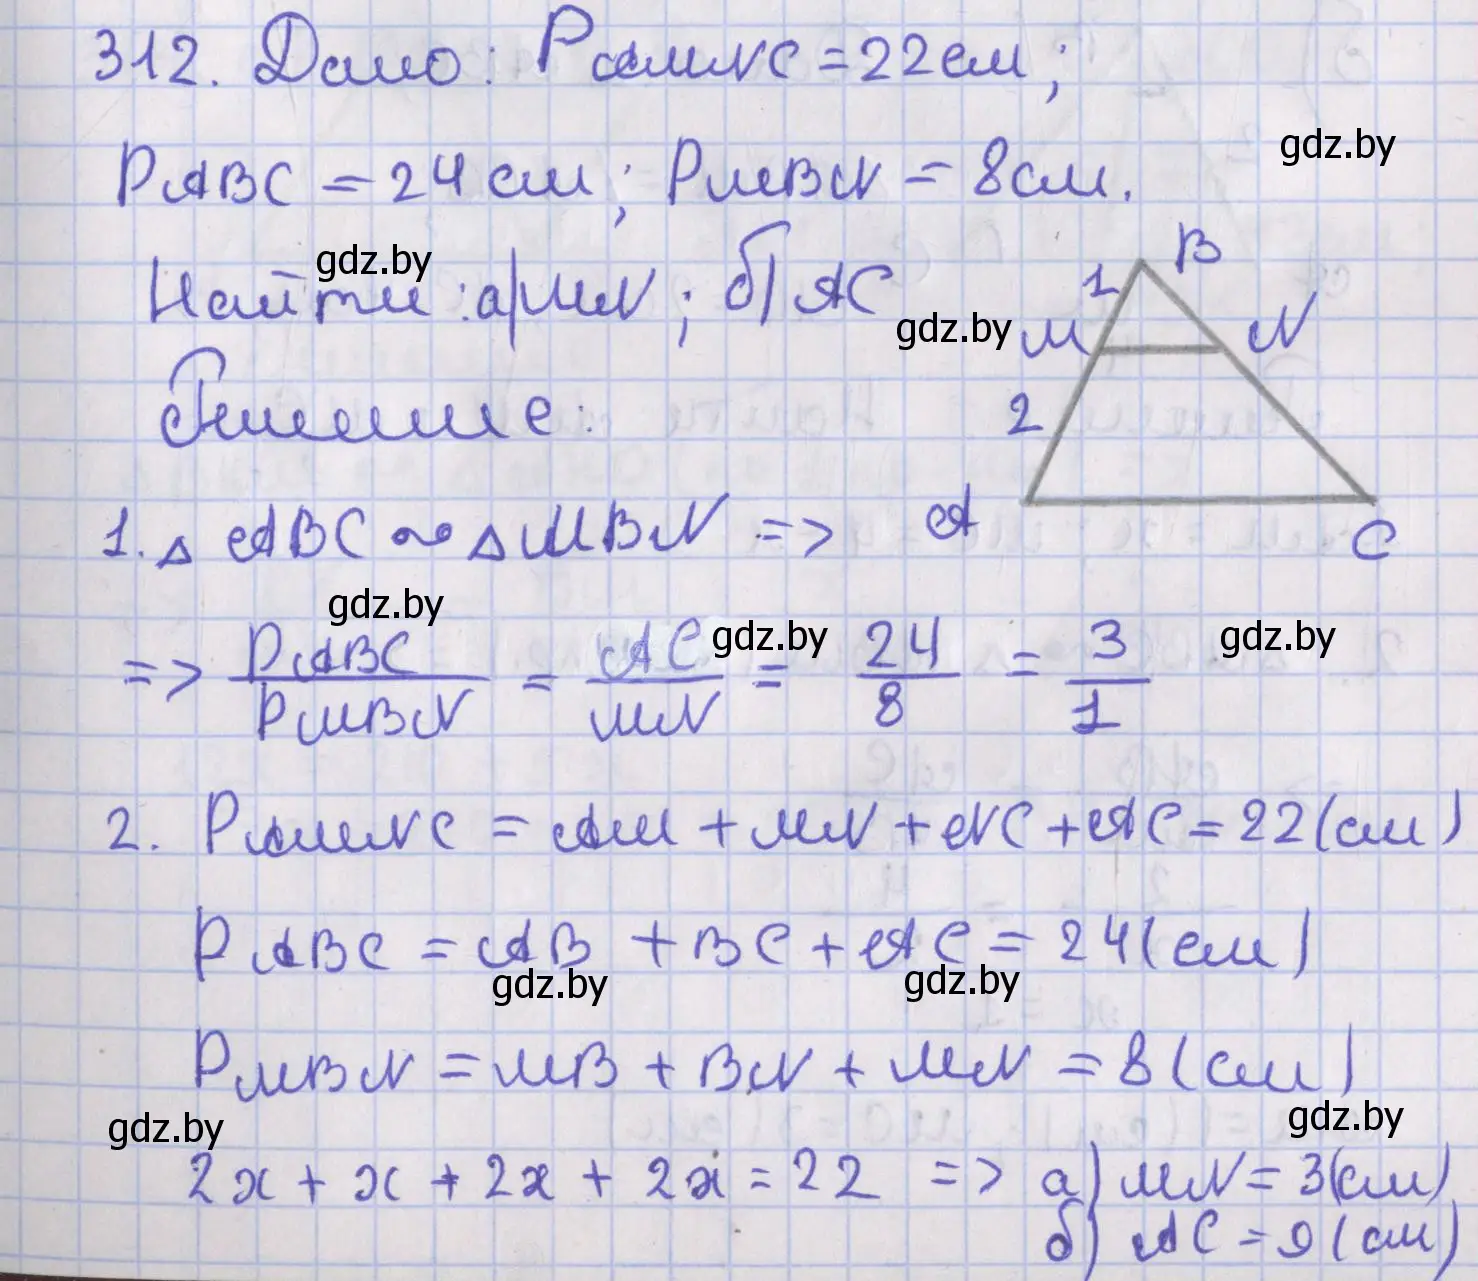 312. Дано: PAMNC = 22 см;
gdz.by
PABC = 24 см; PMBN = 8 см.
gdz.by
Найти: а) MN; б) AC
gdz.by
B
1
M
N
2
A
C
Решение:
1. △ ABC ∼ △ MBN =>
gdz.by
=> PABC/PMBN = AC/MN = 24/8 = 3/1
gdz.by
gdz.by
2. PAMNC = AM + MN + NC + AC = 22 (см)
PABC = AB + BC + AC = 24 (см)
gdz.by
gdz.by
PMBN = MB + BN + MN = 8 (см)
gdz.by
gdz.by
2x + x + 2x + 2x = 22 => а) MN = 3 (см)
б) AC = 9 (см)